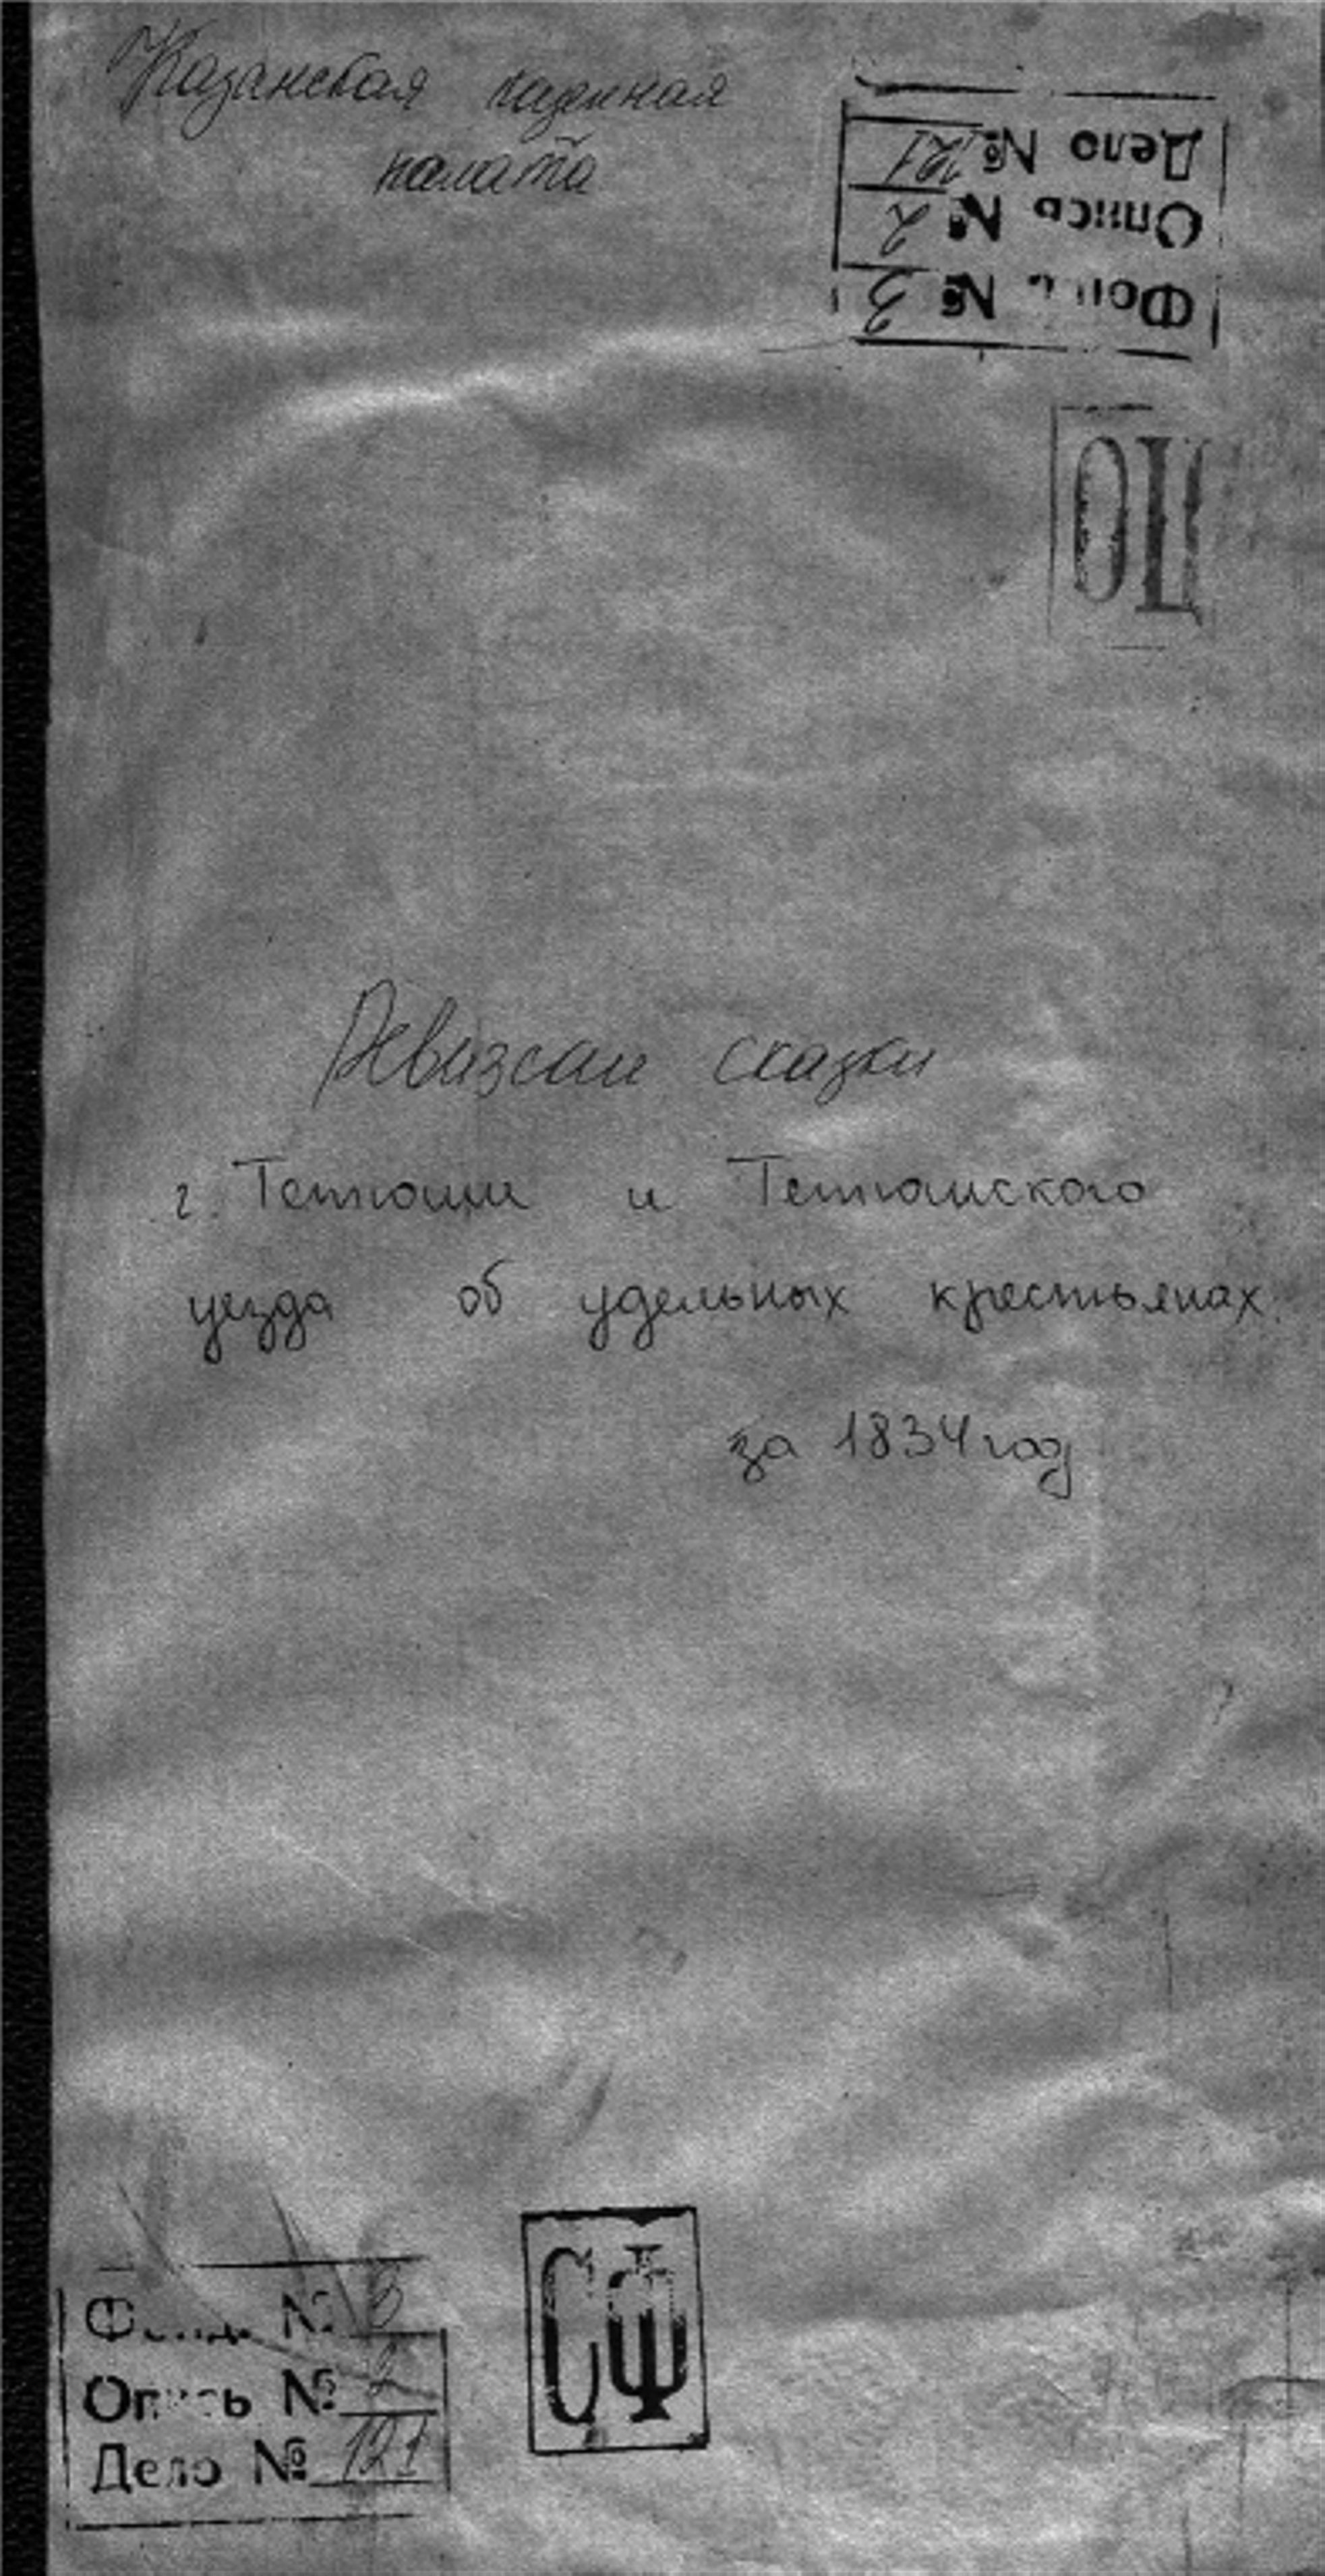 Казанская казенная
палата
Дело № 121
Опись № 2
Фонд № 3
ОЦ
Ревизские сказки
г. Тетюши и Тетюшского
уезда об удельных крестьянах
за 1834 год
СФ
Фонд № 3
Опись № 2
Дело № 121